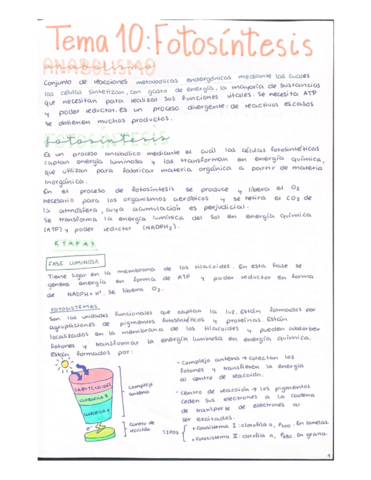 Tema 10: Fotosíntesis
ANABOLISMO
Conjunto de reacciones metabólicas endergónicas mediante las cuales
las células sintetizan, con gasto de energía, la mayoría de sustancias
que necesitan para realizar sus funciones vitales. Se necesita ATP
y poder reductor. Es un proceso divergente: de reactivos escasos
se obtienen muchos productos.
fotosíntesis
Es un proceso anabólico mediante el cuál las células fotosintéticas
captan energía luminosa y las transforman en energía química,
que utilizan para fabricar materia orgánica a partir de materia
inorgánica.
En el proceso de fotosíntesis se produce y libera el O2
necesario para los organismos aeróbicos y se retira el CO2 de
la atmósfera, cuya acumulación es perjudicial.
Se transforma la energía lumínica del Sol en energía química
(ATP) y poder reductor (NADPH2).
ETAPAS
FASE LUMINOSA
Tiene lugar en la membrana de los tilacoides. En esta fase se
genera energía en forma de ATP y poder reductor en forma
de NADPH + H+. Se libera O2.
FOTOSISTEMAS
Son las unidades funcionales que captan la luz. Están formados por
agrupaciones de pigmentos fotosintéticos y proteínas. Están
localizados en la membrana de los tilacoides y pueden absorber
fotones y transformar la energía luminosa en energía química.
Están formados por:
CAROTENOIDES
CLOROFILA B
CLOROFILA A
Complejo
antena
Centro de
reacción
- Complejo antena → colectan los
fotones y transfieren la energía
al centro de reacción.
- Centro de reacción → los pigmentos
ceden sus electrones a la cadena
de transporte de electrones al
ser excitados.
TIPOS
• Fotosistema I: clorofila a, P700. En lamelas.
• Fotosistema II: clorofila a, P680. En grana.
1